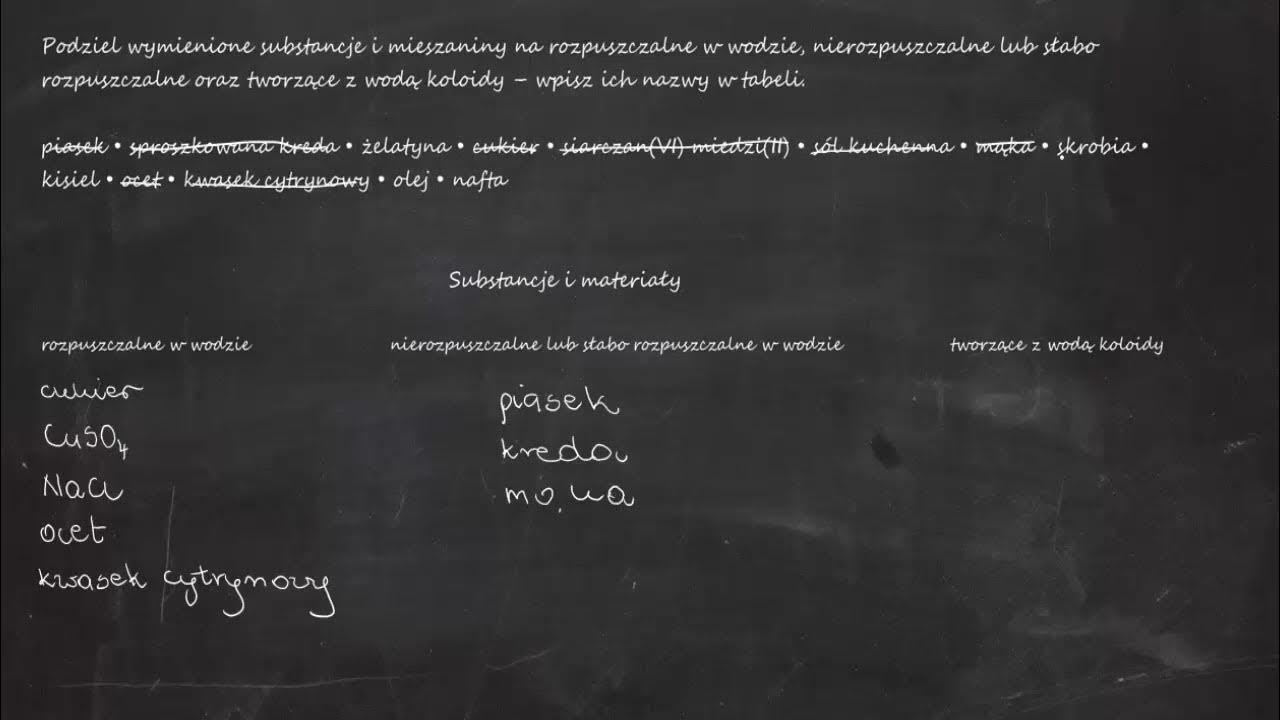 Podziel wymienione substancje i mieszaniny na rozpuszczalne w wodzie, nierozpuszczalne lub słabo
rozpuszczalne oraz tworzące z wodą koloidy – wpisz ich nazwy w tabeli.
piasek • sproszkowana kreda • żelatyna • cukier • siarczan(VI) miedzi(II) • sól kuchenna • mąka • skrobia •
kisiel • ocet • kwasek cytrynowy • olej • nafta
Substancje i materiały
rozpuszczalne w wodzie nierozpuszczalne lub słabo rozpuszczalne w wodzie tworzące z wodą koloidy
cukier piasek
CuSO₄ kreda
NaCl mąka
ocet
kwasek cytrynowy